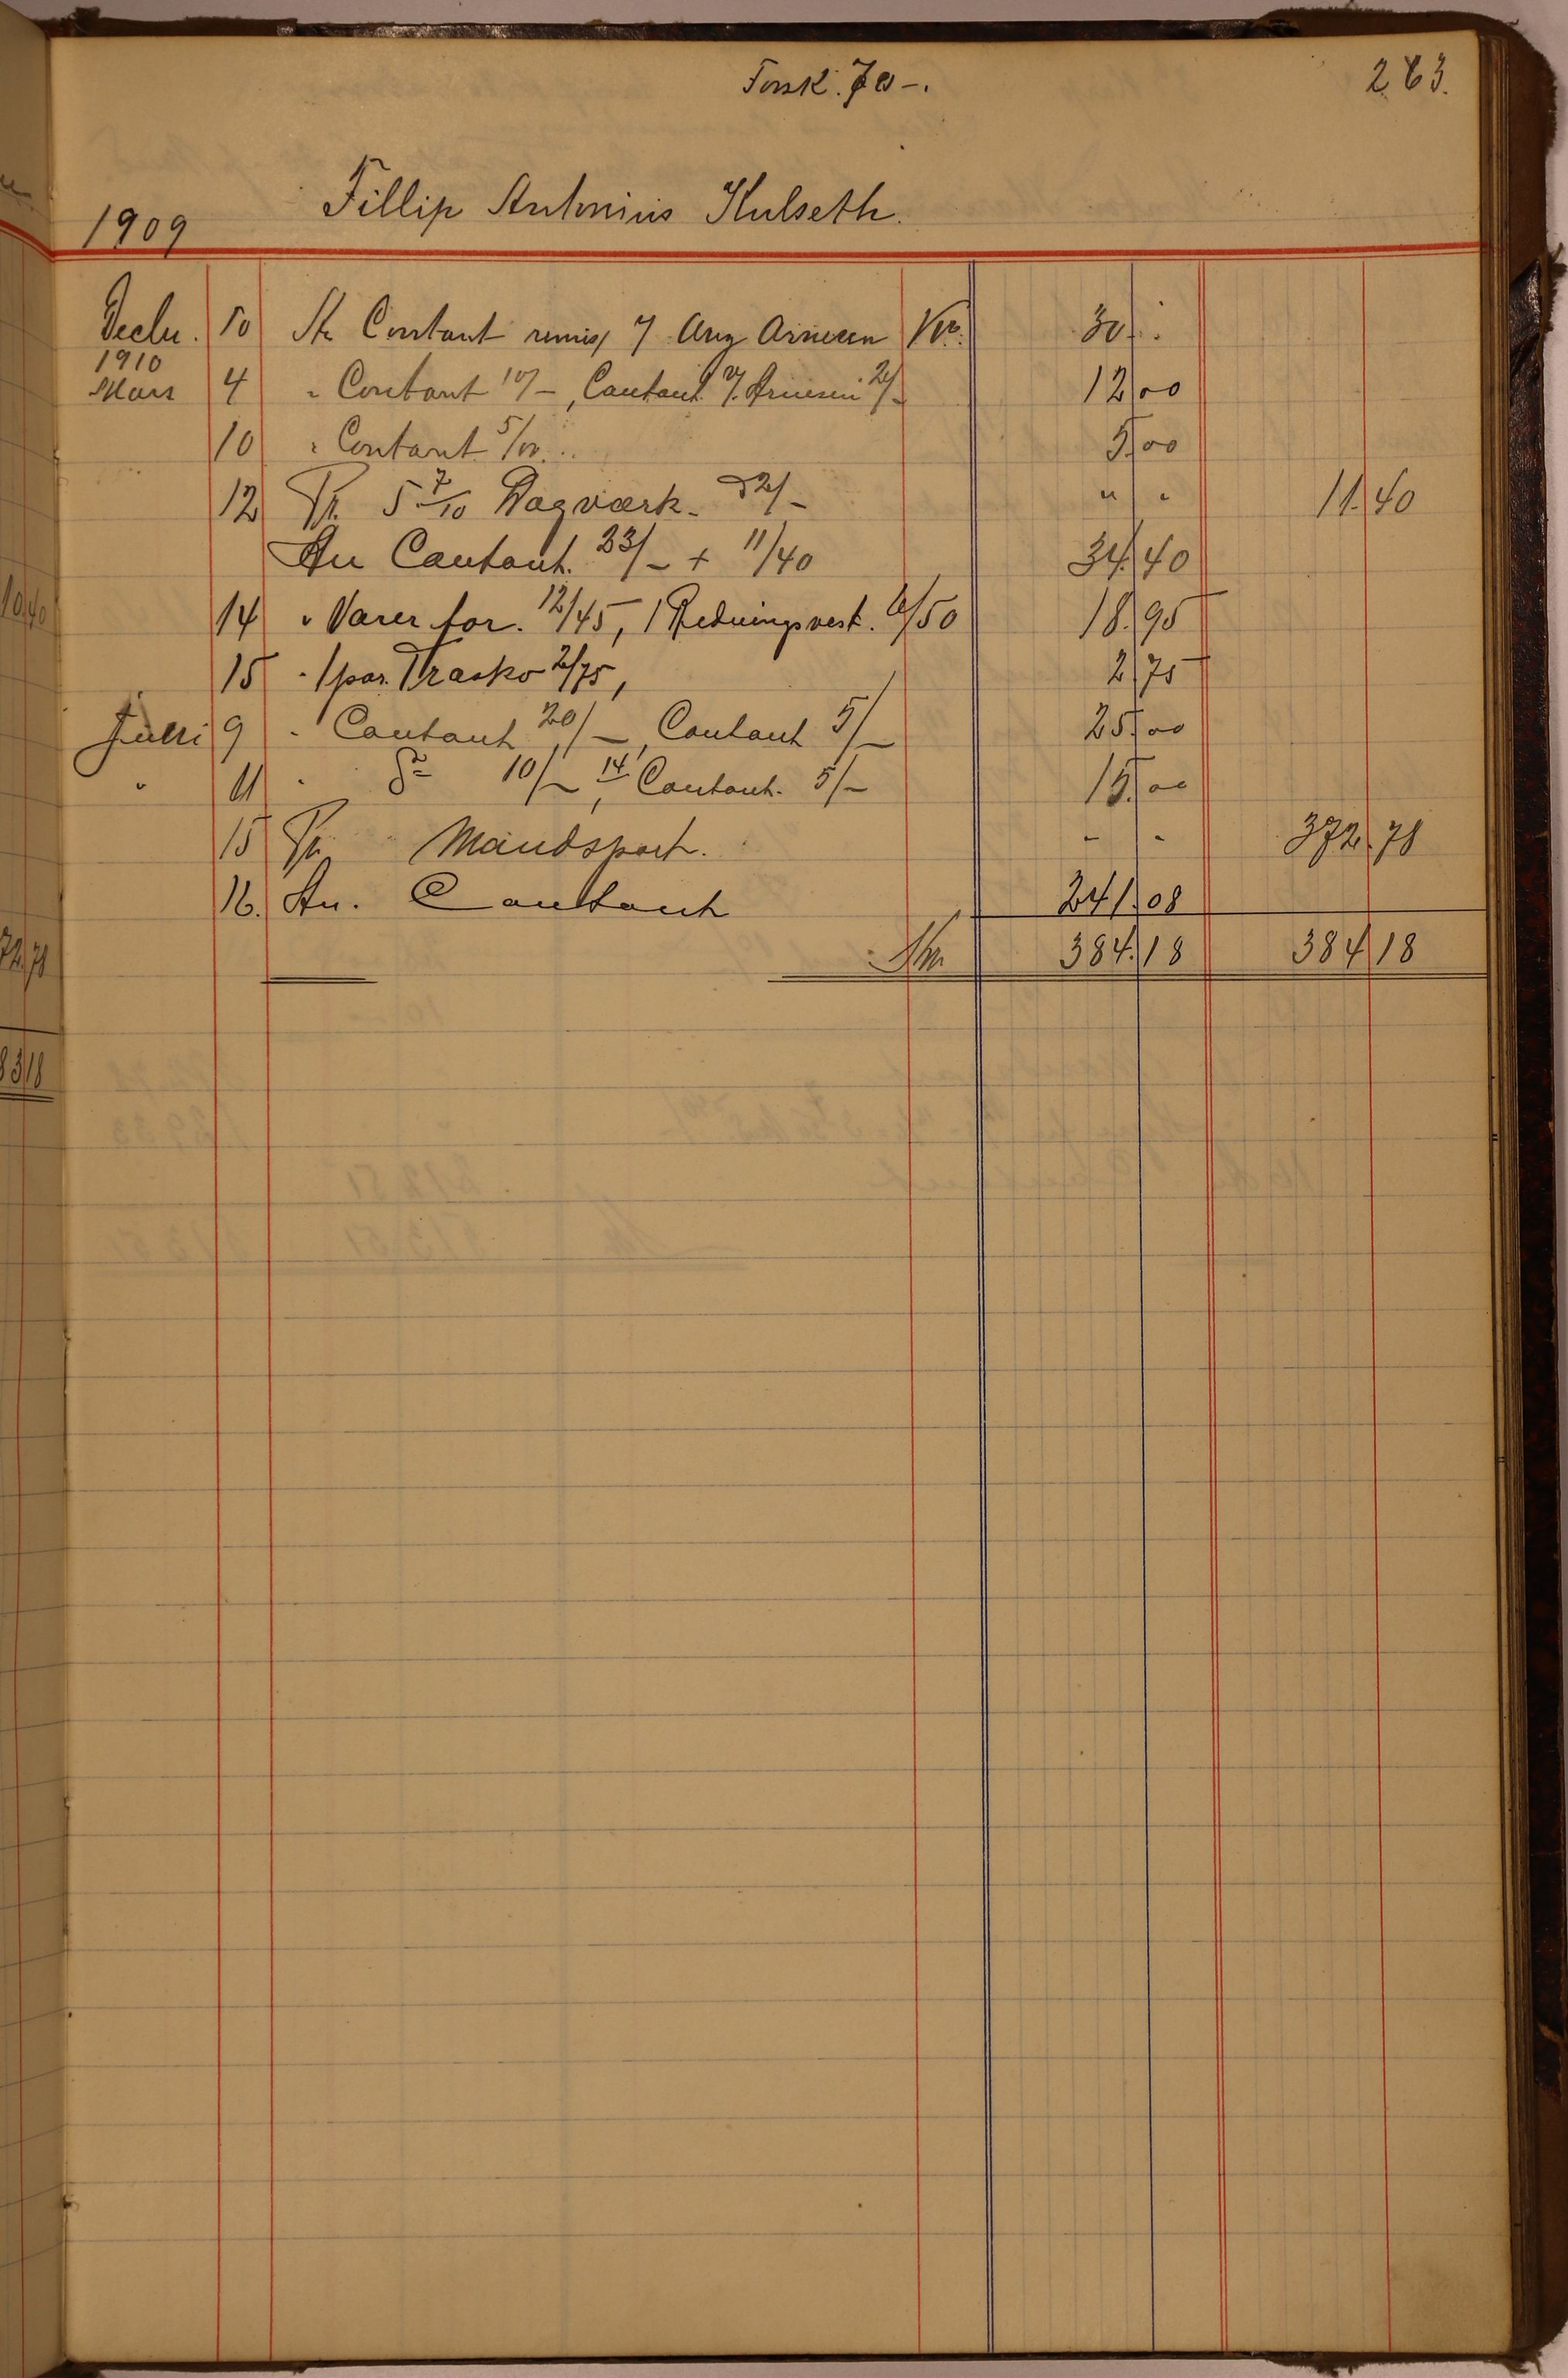 Forsk. 70 -.
263.
Fillip Antonius Hulseth.
1909
Decbr. 10 An Contant remis, Aug Arnesen Kr. 30. -
1910
Mars 4 " Contant 10/-, Contant Arnesen 2/- 12 00
10 " Contant 5/00. 5.00
12 Pr. 5 7/10 Dagværk - à 2/- " " 11.40
An Contant. 23/- + 11/40 34.40
14 " Varer for. 12/45, 1 Redningsvest. 6/50 18.95
15 " 1 par. Træsko 2/75, 2.75
Juni 9 " Contant 20/-, Contant 5/- 25.00
" 11 " Do 10/-, 14 Contant. 5/- 15.00
15 Pr Mandspart. - - 372.78
16. An. Contant 241.08
Kr 384.18 384 18
10 40
72 78
83 18